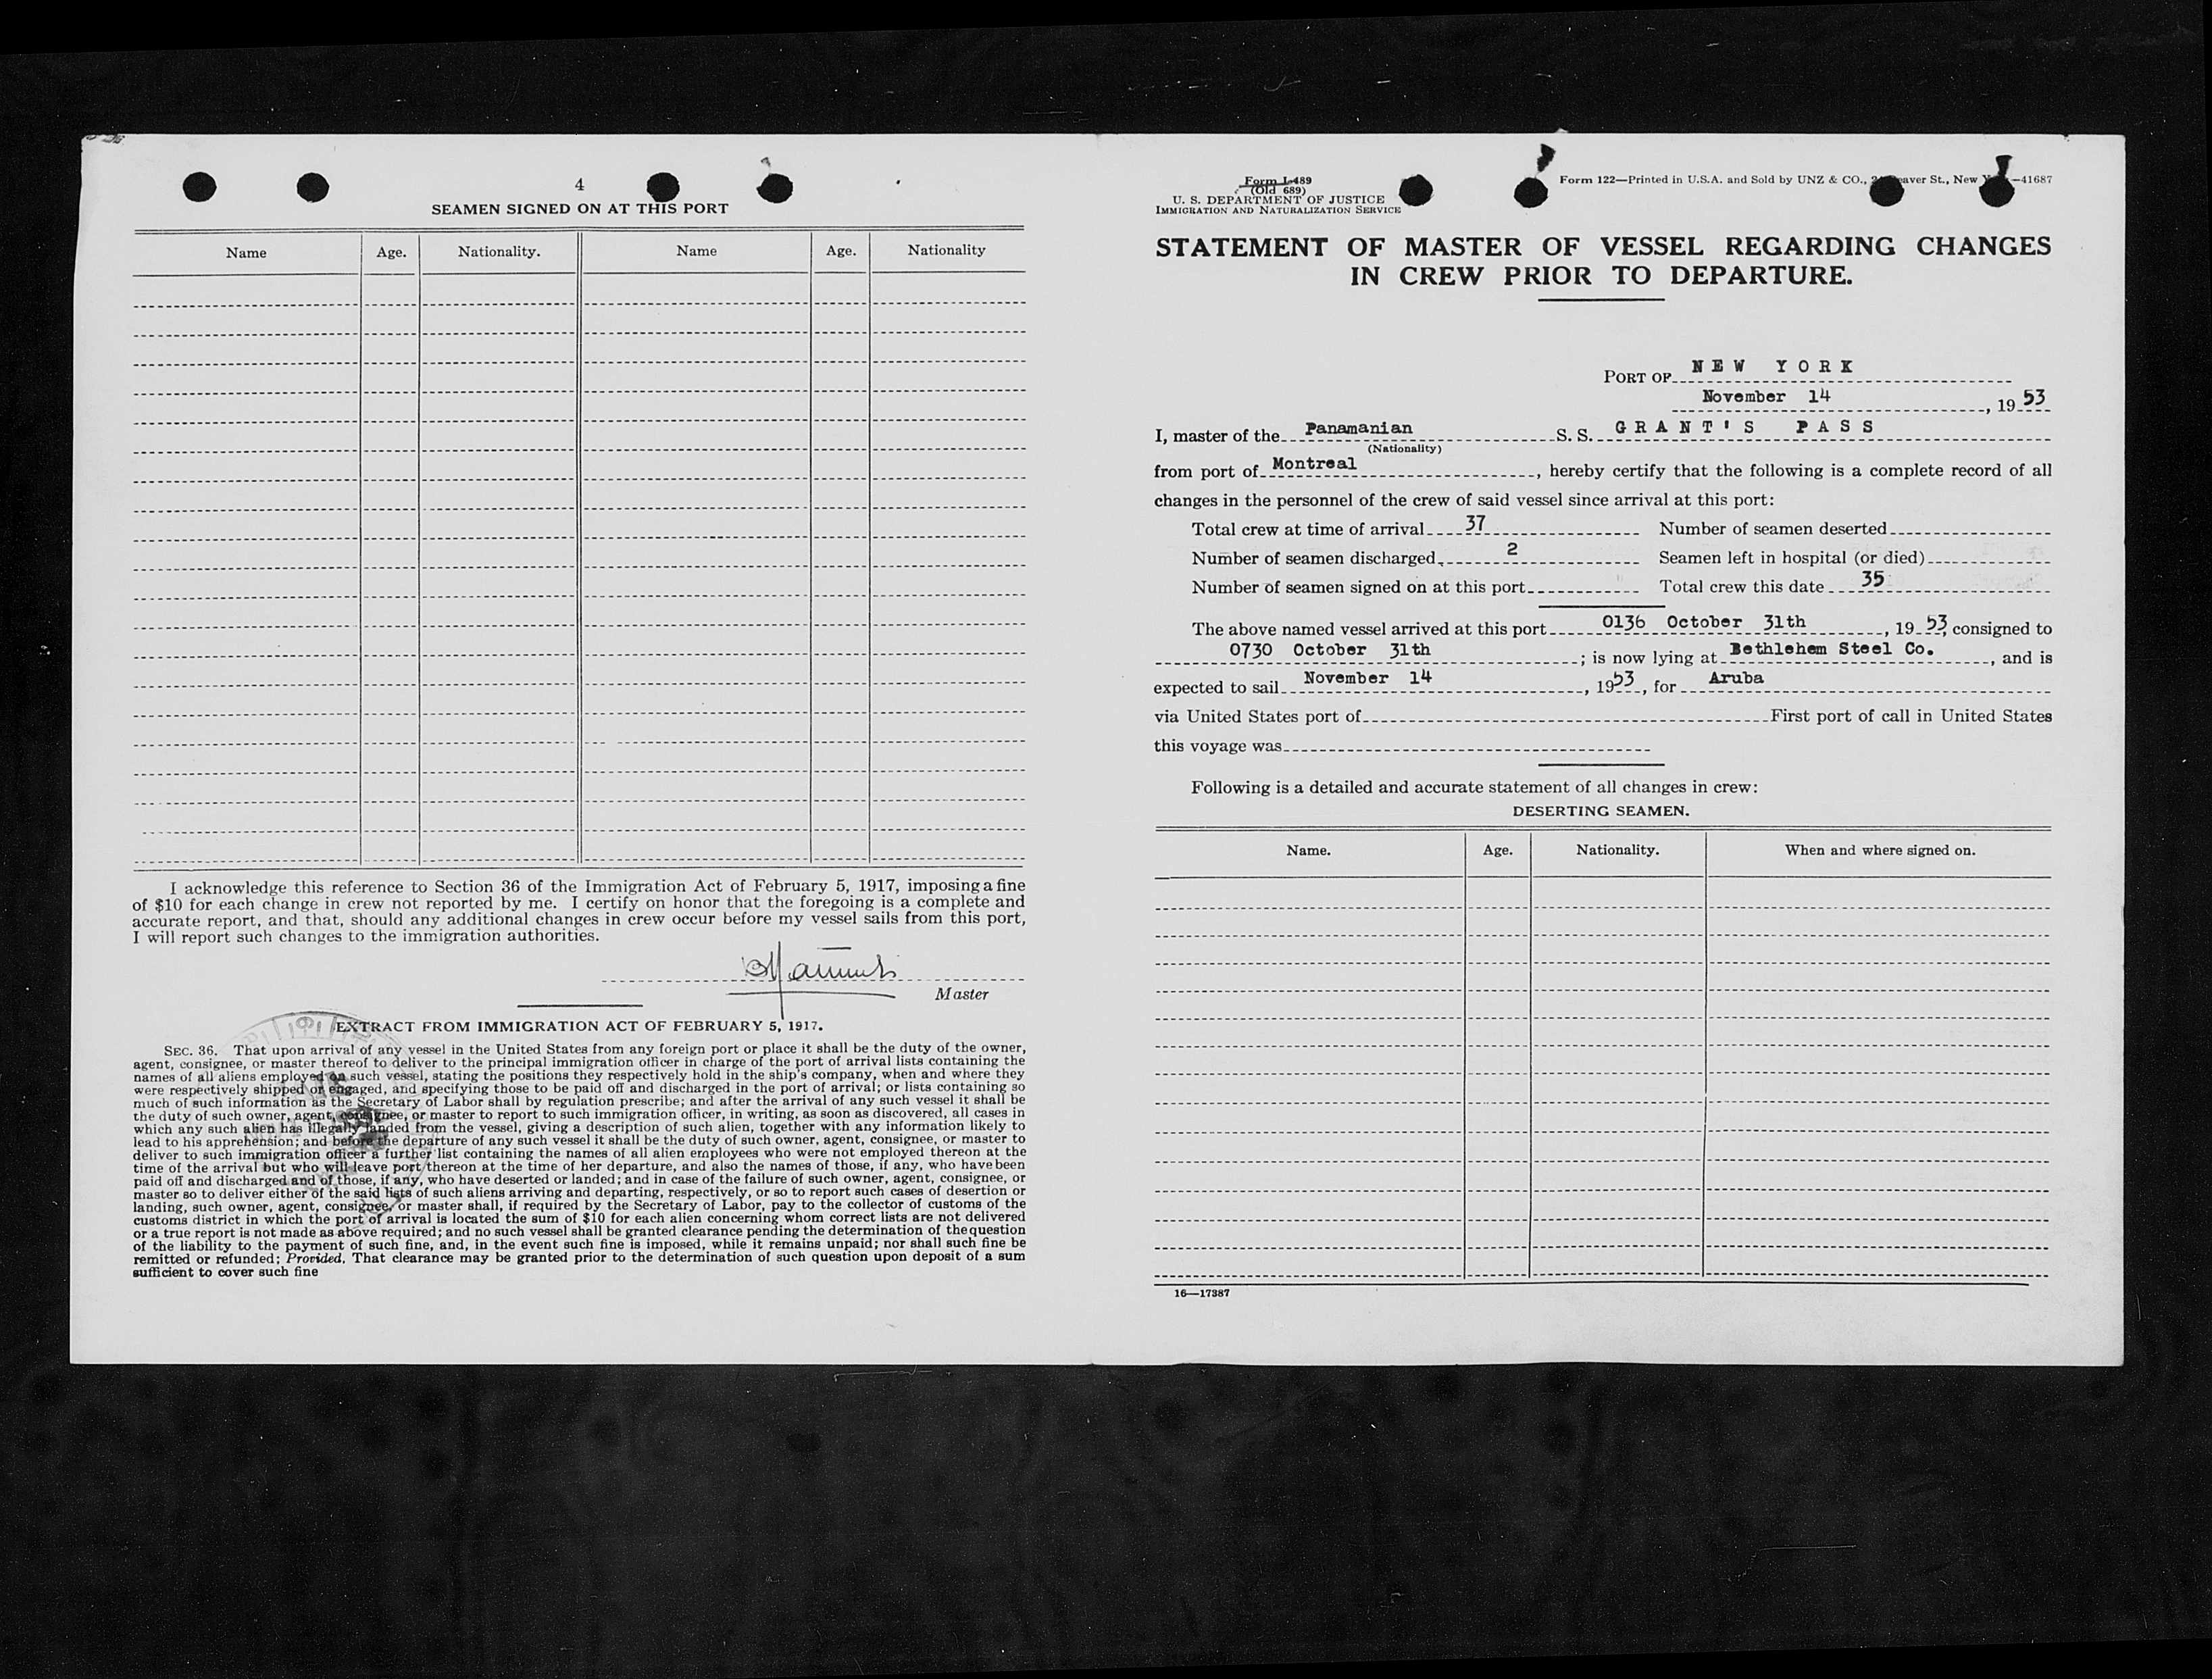 4
SEAMEN SIGNED ON AT THIS PORT
Name Age. Nationality. Name Age. Nationality
I acknowledge this reference to Section 36 of the Immigration Act of February 5, 1917, imposing a fine
of $10 for each change in crew not reported by me. I certify on honor that the foregoing is a complete and
accurate report, and that, should any additional changes in crew occur before my vessel sails from this port,
I will report such changes to the immigration authorities.
Master
EXTRACT FROM IMMIGRATION ACT OF FEBRUARY 5, 1917.
SEC. 36. That upon arrival of any vessel in the United States from any foreign port or place it shall be the duty of the owner,
agent, consignee, or master thereof to deliver to the principal immigration officer in charge of the port of arrival lists containing the
names of all aliens employed on such vessel, stating the positions they respectively hold in the ship's company, when and where they
were respectively shipped or engaged, and specifying those to be paid off and discharged in the port of arrival; or lists containing so
much of such information as the Secretary of Labor shall by regulation prescribe; and after the arrival of any such vessel it shall be
the duty of such owner, agent, consignee, or master to report to such immigration officer, in writing, as soon as discovered, all cases in
which any such alien has illegally landed from the vessel, giving a description of such alien, together with any information likely to
lead to his apprehension; and before the departure of any such vessel it shall be the duty of such owner, agent, consignee, or master to
deliver to such immigration officer a further list containing the names of all alien employees who were not employed thereon at the
time of the arrival but who will leave port thereon at the time of her departure, and also the names of those, if any, who have been
paid off and discharged and of those, if any, who have deserted or landed; and in case of the failure of such owner, agent, consignee, or
master so to deliver either of the said lists of such aliens arriving and departing, respectively, or so to report such cases of desertion or
landing, such owner, agent, consignee, or master shall, if required by the Secretary of Labor, pay to the collector of customs of the
customs district in which the port of arrival is located the sum of $10 for each alien concerning whom correct lists are not delivered
or a true report is not made as above required; and no such vessel shall be granted clearance pending the determination of the question
of the liability to the payment of such fine, and, in the event such fine is imposed, while it remains unpaid; nor shall such fine be
remitted or refunded; Provided, That clearance may be granted prior to the determination of such question upon deposit of a sum
sufficient to cover such fine
Form I-489
(Old 689)
U. S. DEPARTMENT OF JUSTICE
IMMIGRATION AND NATURALIZATION SERVICE
Form 122—Printed in U.S.A. and Sold by UNZ & CO., St., New —41687
STATEMENT OF MASTER OF VESSEL REGARDING CHANGES
IN CREW PRIOR TO DEPARTURE.
PORT OF NEW YORK
November 14, 1953
I, master of the Panamanian S. S. GRANT'S PASS
(Nationality)
from port of Montreal, hereby certify that the following is a complete record of all
changes in the personnel of the crew of said vessel since arrival at this port:
Total crew at time of arrival 37 Number of seamen deserted
Number of seamen discharged 2 Seamen left in hospital (or died)
Number of seamen signed on at this port Total crew this date 35
The above named vessel arrived at this port 0136 October 31th, 1953, consigned to
0730 October 31th; is now lying at Bethlehem Steel Co., and is
expected to sail November 14, 1953, for Aruba
via United States port of First port of call in United States
this voyage was
Following is a detailed and accurate statement of all changes in crew:
DESERTING SEAMEN.
Name. Age. Nationality. When and where signed on.
16—17387